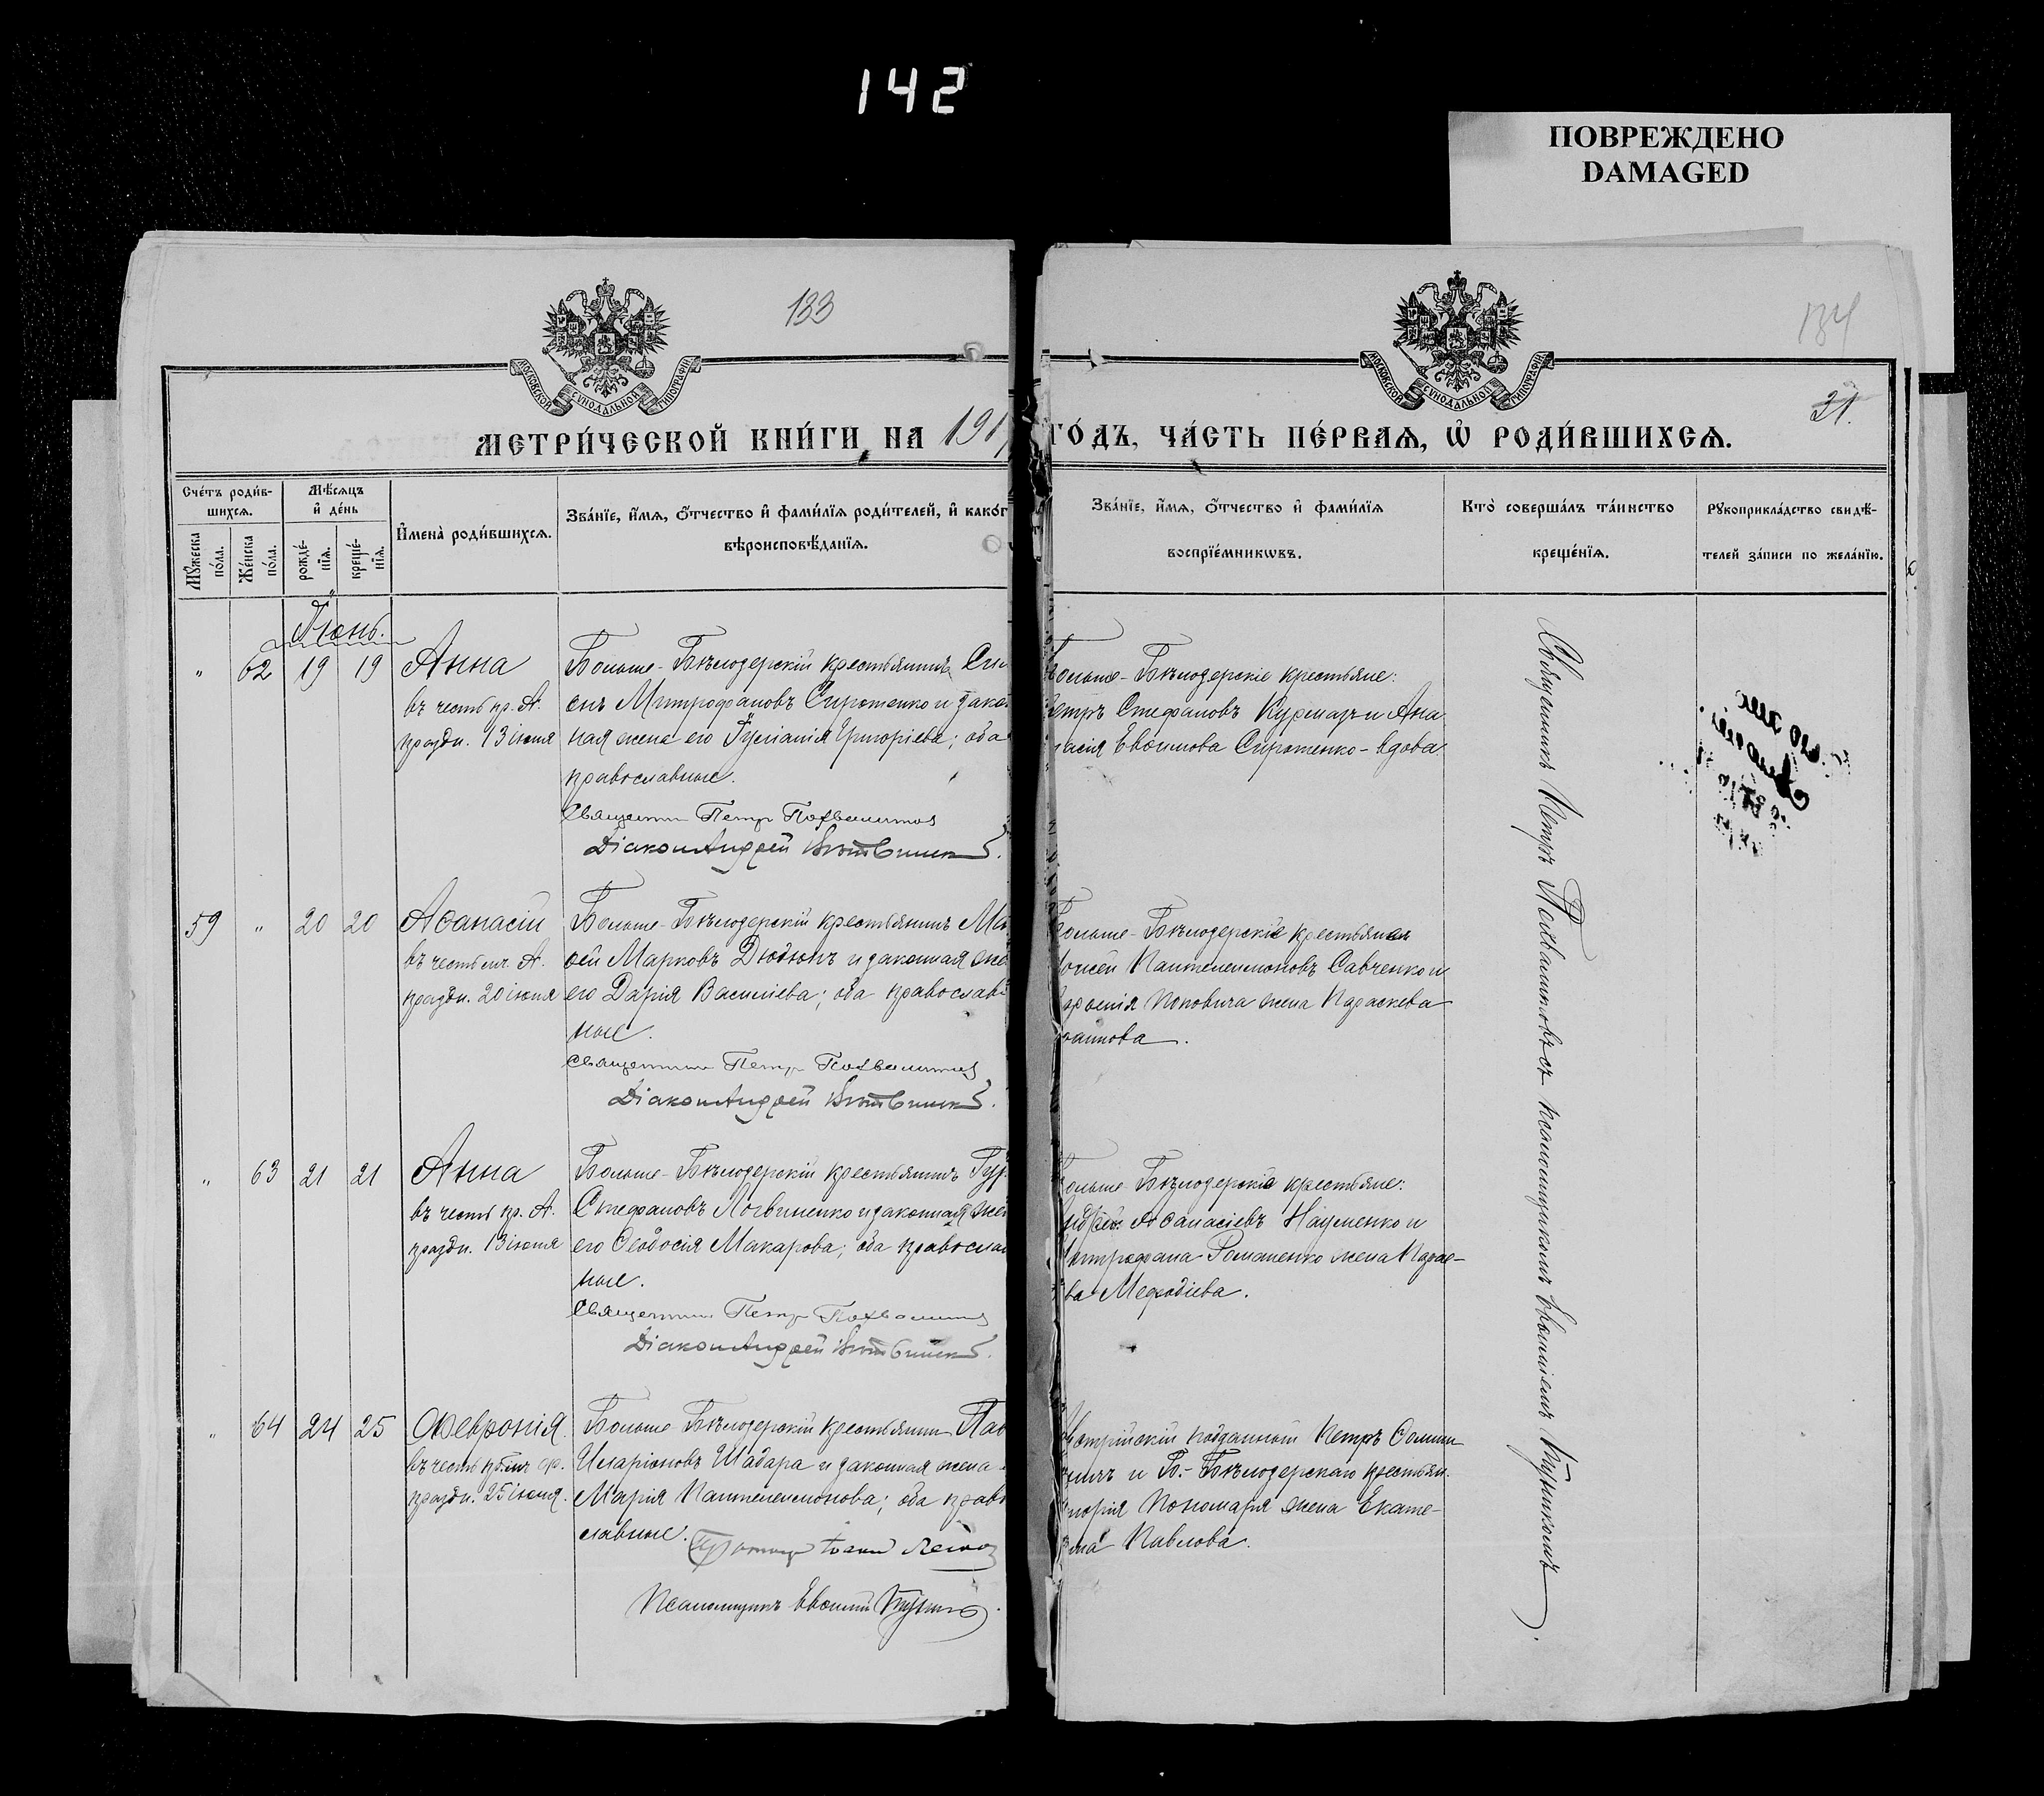 142
ПОВРЕЖДЕНО
DAMAGED
133
134
31.
МОСКОВСКОЙ СѴНОДАЛЬНОЙ ТИПОГРАФІИ
МОСКОВСКОЙ СѴНОДАЛЬНОЙ ТИПОГРАФІИ
МЕТРИ́ЧЕСКОЙ КНИ́ГИ НА 191
ГО́ДЪ, ЧА́СТЬ ПЕ́РВАѦ, Ѽ РОДИ́ВШИХСѦ.
Сче́тъ роди́в-
шихсѧ.
Мꙋ́жеска по́ла.
Же́нска по́ла.
Мѣ́сѧцъ
и҆ де́нь
рожде́-
нїѧ.
креще́-
нїѧ.
И҆мена̀ роди́вшихсѧ.
Зва́нїе, и҆́мѧ, ѻ҆́тчество и҆ фами́лїѧ роди́телей, и҆ како́г
вѣроисповѣ́данїѧ.
Зва́нїе, и҆́мѧ, ѻ҆́тчество и҆ фами́лїѧ
воспрїе́мникѡвъ.
Кто̀ соверша́лъ та́инство
креще́нїѧ.
Рꙋкоприкла́дство свидѣ́-
телей за́писи по жела́нїю.
Іюнь.
" 62 19 19 Анна
въ честь пр. А.
праздн. 13 іюня
Больше-Бѣлозерскій крестьянинъ Сим
онъ Митрофановъ Сиротенко и закон
ная жена его Григоріева; оба
православные.
Священникъ Петръ Похвалитовъ
Діаконъ Андрей
Больше-Бѣлозерскіе крестьяне:
етръ Стефановъ Курмазъ и Ана
асія Евѳимова Сиротенко-вдова.
59 " 20 20 Аѳанасій
въ честь мч. А.
праздн. 20 іюня
Больше-Бѣлозерскій крестьянинъ
Марковъ Дюдюнъ и законная же
его Дарія Василіева; оба православ-
ные.
Священникъ Петръ Похвалитовъ
Діаконъ Андрей
Больше-Бѣлозерскіе крестьяне
оисей Пантелеимоновъ Савченко и
Поповича жена Параскева
оаннова.
" 63 21 21 Анна
въ честь пр. А.
праздн. 13 іюня
Больше-Бѣлозерскій крестьянинъ
Стефановъ Логвиненко и законная жен
его Ѳеодосія Макарова; оба православ
ные.
Священникъ Петръ Похвалитовъ
Діаконъ Андрей
ольше-Бѣлозерскіе крестьяне:
ндрей Аѳанасіевъ Науменко и
итрофана Романенко жена Парас-
ва Меѳодіева.
" 64 24 25 Февронія
въ честь Ф.
праздн. 25 іюня.
Больше-Бѣлозерскій крестьянинъ Пав
Иларіоновъ Шабара и законная жена
Марія Пантелеимонова; оба право
славные.
Псаломщикъ Евѳимій
встрійскій подданный Петръ
и Б.-Бѣлозерскаго крестьян.
Пономаря жена Екате-
ина Павлова.
Священникъ Петръ Похвалитовъ съ псаломщикомъ Евѳиміемъ